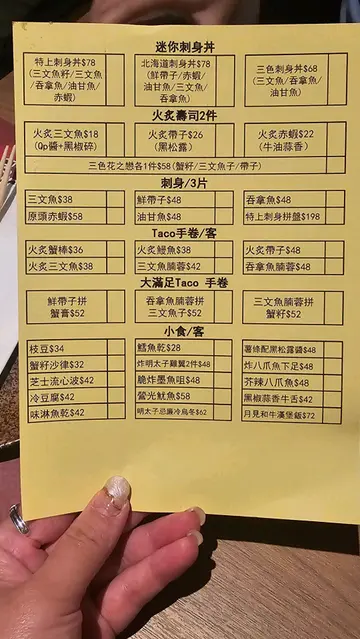 迷你刺身丼
特上刺身丼$78
(三文魚籽/三文魚
/吞拿魚/油甘魚/
赤蝦)
北海道刺身丼$78
(鮮帶子/赤蝦/
油甘魚/三文魚/
吞拿魚)
三色刺身丼$68
(三文魚/吞拿魚/
油甘魚)
火炙壽司2件
火炙三文魚$18
(Qp醬+黑椒碎)
火炙帶子$26
(黑松露)
火炙赤蝦$22
(牛油蒜香)
三色花之戀各1件$58(蟹籽/三文魚子/帶子)
刺身/3片
三文魚$38
鮮帶子$48
吞拿魚$48
原頭赤蝦$58
油甘魚$48
特上刺身拼盤$198
Taco手卷/客
火炙蟹棒$36
火炙鰻魚$38
火炙帶子$48
火炙三文魚$38
三文魚腩蓉$42
吞拿魚腩蓉$48
大滿足Taco 手卷
鮮帶子拼
蟹膏$52
吞拿魚腩蓉拼
三文魚子$52
三文魚腩蓉拼
蟹籽$52
小食/客
枝豆$34
鱈魚乾$28
薯條配黑松露醬$48
蟹籽沙律$32
炸明太子雞翼2件$48
炸八爪魚下足$48
芝士流心波$42
脆炸墨魚咀$48
芥辣八爪魚$48
冷豆腐$42
螢光魷魚$58
黑椒蒜香牛舌$42
味淋魚乾$42
明太子忌廉冷烏冬$62
月見和牛漢堡飯$72